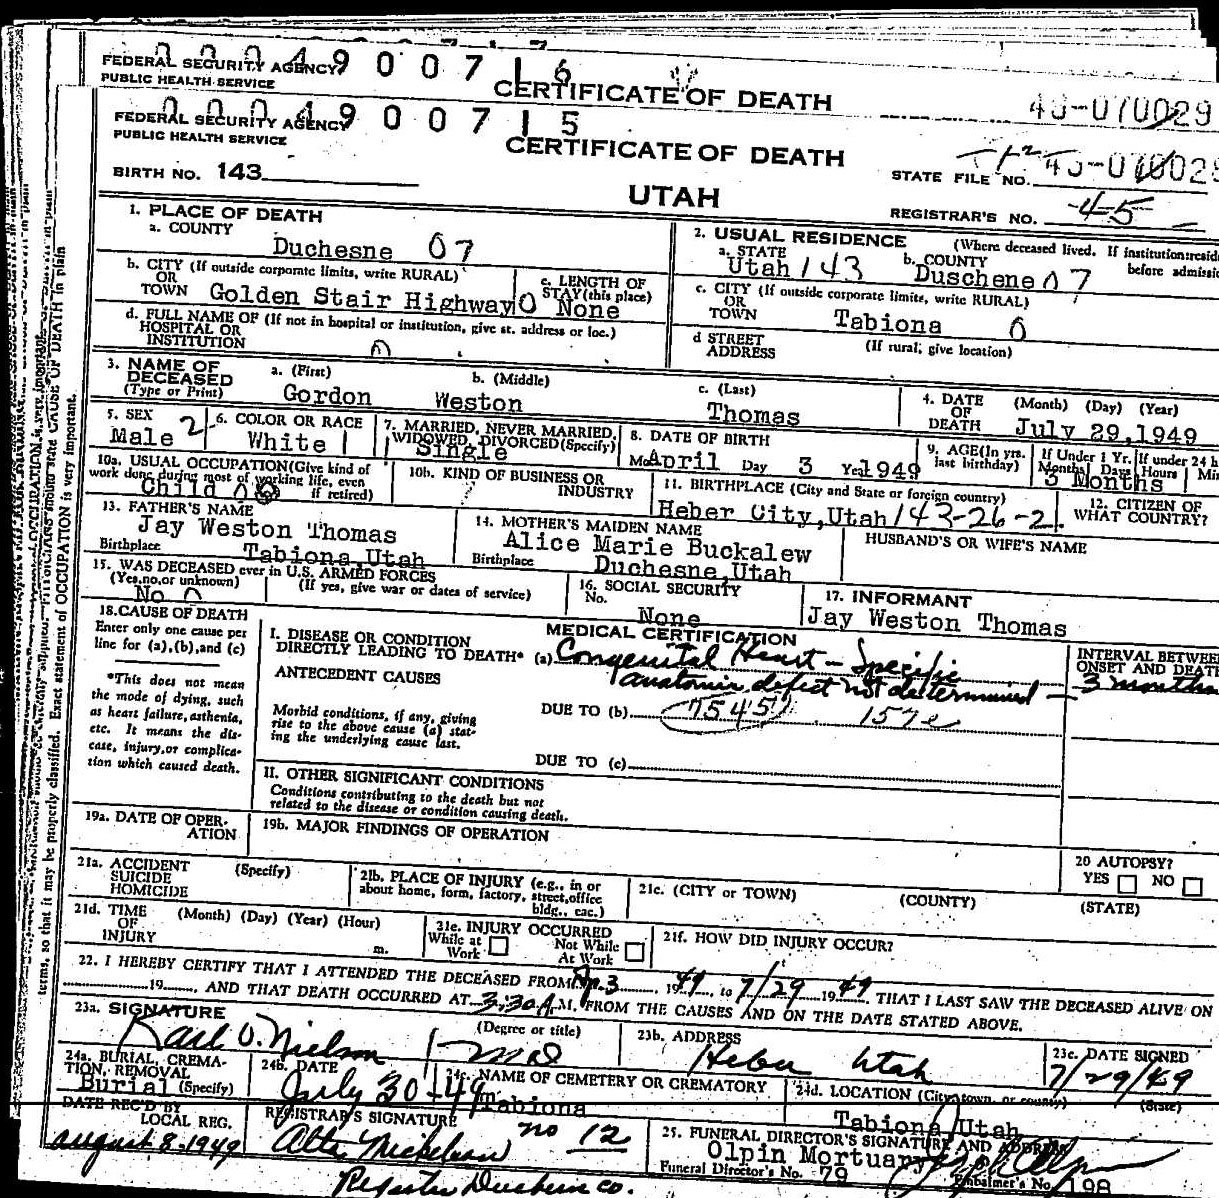 FEDERAL SECURITY AGENCY
PUBLIC HEALTH SERVICE
000490071 6
CERTIFICATE OF DEATH
FEDERAL SECURITY AGENCY
PUBLIC HEALTH SERVICE
000490071 5
CERTIFICATE OF DEATH
BIRTH NO. 143
UTAH
STATE FILE NO.
REGISTRAR'S NO. 45
1. PLACE OF DEATH
a. COUNTY
Duchesne 07
2. USUAL RESIDENCE (Where deceased lived. If institution:
before
a. STATE
Utah 143
b. COUNTY
Duschene 07
b. CITY (If outside corporate limits, write RURAL)
OR
TOWN Golden Stair Highway 0
c. LENGTH OF
STAY (this place)
None
c. CITY (If outside corporate limits, write RURAL)
OR
TOWN Tabiona 0
d. FULL NAME OF (If not in hospital or institution, give st. address or loc.)
HOSPITAL OR
INSTITUTION
d STREET
ADDRESS
(If rural, give location)
3. NAME OF
DECEASED
(Type or Print)
a. (First)
Gordon
b. (Middle)
Weston
c. (Last)
Thomas
4. DATE
OF
DEATH
(Month) (Day) (Year)
July 29,1949
5. SEX
Male 2
6. COLOR OR RACE
White 1
7. MARRIED, NEVER MARRIED,
WIDOWED, DIVORCED (Specify)
Single
8. DATE OF BIRTH
Mo. April Day 3 Yea 1949
9. AGE (In yrs.
last birthday)
If Under 1 Yr.
Months Days
3 Months
If under 24 h
Hours Min
10a. USUAL OCCUPATION (Give kind of
work done during most of working life, even
if retired)
Child
10b. KIND OF BUSINESS OR
INDUSTRY
11. BIRTHPLACE (City and State or foreign country)
Heber City, Utah 143-26-2
12. CITIZEN OF
WHAT COUNTRY?
13. FATHER'S NAME
Jay Weston Thomas
Birthplace
Tabiona, Utah
14. MOTHER'S MAIDEN NAME
Alice Marie Buckalew
Birthplace Duchesne, Utah
HUSBAND'S OR WIFE'S NAME
15. WAS DECEASED ever in U.S. ARMED FORCES
(Yes,no,or unknown)
(If yes, give war or dates of service)
No
16. SOCIAL SECURITY
No.
None
17. INFORMANT
Jay Weston Thomas
18. CAUSE OF DEATH
Enter only one cause per
line for (a),(b),and (c)
*This does not mean
the mode of dying, such
as heart failure, asthenia,
etc. It means the dis-
case, injury,or complica-
tion which caused death.
MEDICAL CERTIFICATION
I. DISEASE OR CONDITION
DIRECTLY LEADING TO DEATH* (a) Congenital Heart - Specific
anatomic defect not determined
ANTECEDENT CAUSES
Morbid conditions, if any, giving
rise to the above cause (a) stat-
ing the underlying cause last.
DUE TO (b) 7545 157e
DUE TO (c)
INTERVAL BETWEEN
ONSET AND DEATH
3 months
II. OTHER SIGNIFICANT CONDITIONS
Conditions contributing to the death but not
related to the disease or condition causing death.
19a. DATE OF OPER-
ATION
19b. MAJOR FINDINGS OF OPERATION
20 AUTOPSY?
YES NO
21a. ACCIDENT
SUICIDE
HOMICIDE
(Specify)
21b. PLACE OF INJURY (e.g., in or
about home, form, factory, street,office
bldg., eac.)
21c. (CITY or TOWN)
(COUNTY)
(STATE)
21d. TIME
OF
INJURY
(Month) (Day) (Year) (Hour)
m.
21e. INJURY OCCURRED
While at
Work
Not While
At Work
21f. HOW DID INJURY OCCUR?
22. I HEREBY CERTIFY THAT I ATTENDED THE DECEASED FROM Ap. 3 1949, to 7/29 1949 THAT I LAST SAW THE DECEASED ALIVE ON
19 , AND THAT DEATH OCCURRED AT 3:30 A.M. FROM THE CAUSES AND ON THE DATE STATED ABOVE.
23a. SIGNATURE
Karl O. Nielson
(Degree or title)
MD
23b. ADDRESS
Heber Utah
23c. DATE SIGNED
7/29/49
24a. BURIAL, CREMA-
TION, REMOVAL
Burial (Specify)
24b. DATE
July 30-49
24c. NAME OF CEMETERY OR CREMATORY
Tabiona
24d. LOCATION (City, town, or county)
(State)
Tabiona, Utah
DATE REC'D BY
LOCAL REG.
August 8-1949
REGISTRAR'S SIGNATURE no 12
Alta Mickelson
Register Duchesne Co.
25. FUNERAL DIRECTOR'S SIGNATURE AND ADDRESS
Olpin Mortuary
Funeral Director's No. 79
Embalmer's No. 198
terms, so that it may be properly classified. Exact statement of OCCUPATION is very important.